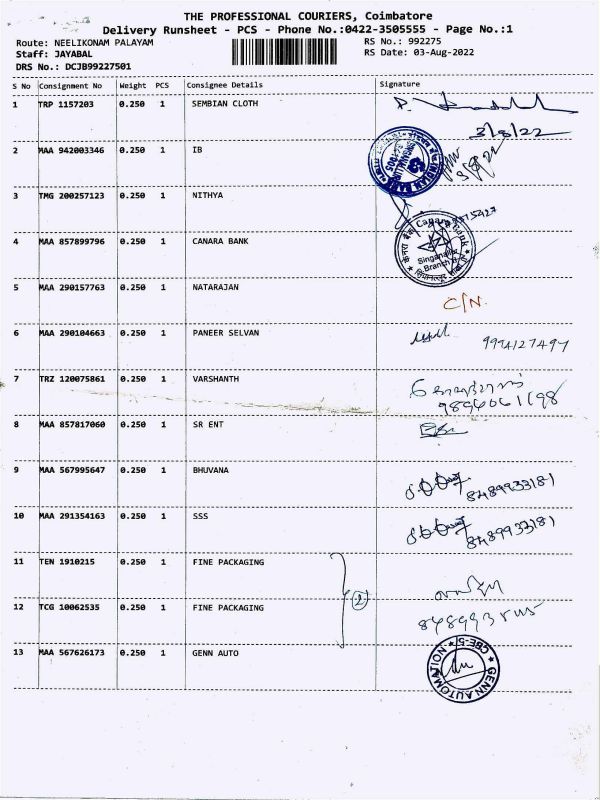 THE PROFESSIONAL COURIERS, Coimbatore
Delivery Runsheet - PCS - Phone No.:0422-3505555 - Page No.:1
Route: NEELIKONAM PALAYAM
RS No.: 992275
Staff: JAYABAL
RS Date: 03-Aug-2022
DRS No.: DCJB99227501
S No Consignment No Weight PCS Consignee Details Signature
1 TRP 1157203 0.250 1 SEMBIAN CLOTH
3/8/22
2 MAA 942003346 0.250 1 IB
3 TMG 200257123 0.250 1 NITHYA
4 MAA 857899796 0.250 1 CANARA BANK
Canara Bank
Singanallur
Branch
5 MAA 290157763 0.250 1 NATARAJAN
C/N.
6 MAA 290104663 0.250 1 PANEER SELVAN
9994127497
7 TRZ 120075861 0.250 1 VARSHANTH
9894061198
8 MAA 857817060 0.250 1 SR ENT
9 MAA 567995647 0.250 1 BHUVANA
8489933181
10 MAA 291354163 0.250 1 SSS
8489933181
11 TEN 1910215 0.250 1 FINE PACKAGING
2
12 TCG 10062535 0.250 1 FINE PACKAGING
13 MAA 567626173 0.250 1 GENN AUTO
GENN AUTOMATION
CBE-5